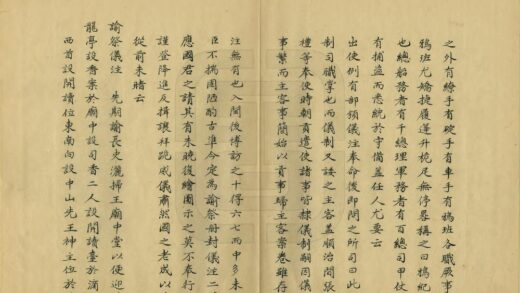 之外有繚手有碇手有車手有鴉班各職厥事
鴉班尤嬌捷履運升桅足無停晷稱之曰鴉紀
也總船務者有千總理軍務者有百總司甲仗
有捕盜而悉統於守備蓋任人尤要云
出使例有部頒儀注奉命後即問之所司曰此
制司職掌也而儀制又諉之主客蓋順治間張
禮等奉使時朝貢遣使諸事皆隸儀制嗣因儀
事繁而主客事簡始以貢事歸主客案卷雖存
注無有也入閩後博訪之十得六七而中多未
臣不揣固陋酌古準今定為諭祭冊封儀注二
應國君之請其有未晚復繪圖示之莫不奉行
謹登降進反揖讓拜跪威儀肅然國之老成以
從前未睹云
諭祭儀注 先期諭長史灑掃王廟中堂以使迎
龍亭設香案於廟中設司香二人設開讀臺於滴
西首設開讀位東南向設中山先王神主位於